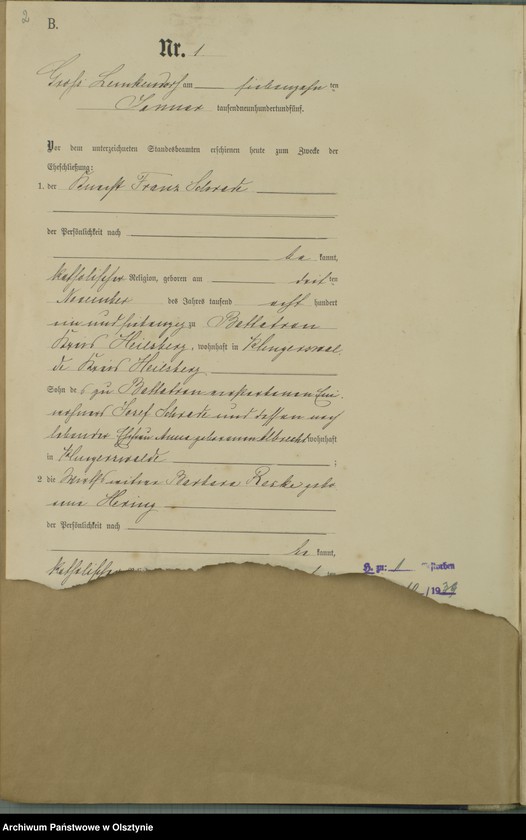 2
B.
Nr. 1
Groß Lemkendorf am siebenzehn ten
Januar tausendneunhundertundfünf.
Vor dem unterzeichneten Standesbeamten erschienen heute zum Zwecke der
Eheschließung:
1. der Knecht Franz Schrade
der Persönlichkeit nach
be kannt,
katholischer Religion, geboren am ten
November des Jahres tausend acht hundert
ein und siebenzig zu Battatron
Kreis Heilsberg, wohnhaft in Klingerswal
de Kreis Heilsberg
Sohn des zu Battatron verstorbenen Ein
wohners Josef Schrade und dessen noch
lebender Ehefrau Anna geborenen Albrecht wohnhaft
in Klingerswalde ;
2 die Barbara Reske gebo
rene Hering
der Persönlichkeit nach
be kannt,
katholischer
H. zu: 1
/ 1939
Archiwum Państwowe w Olsztynie